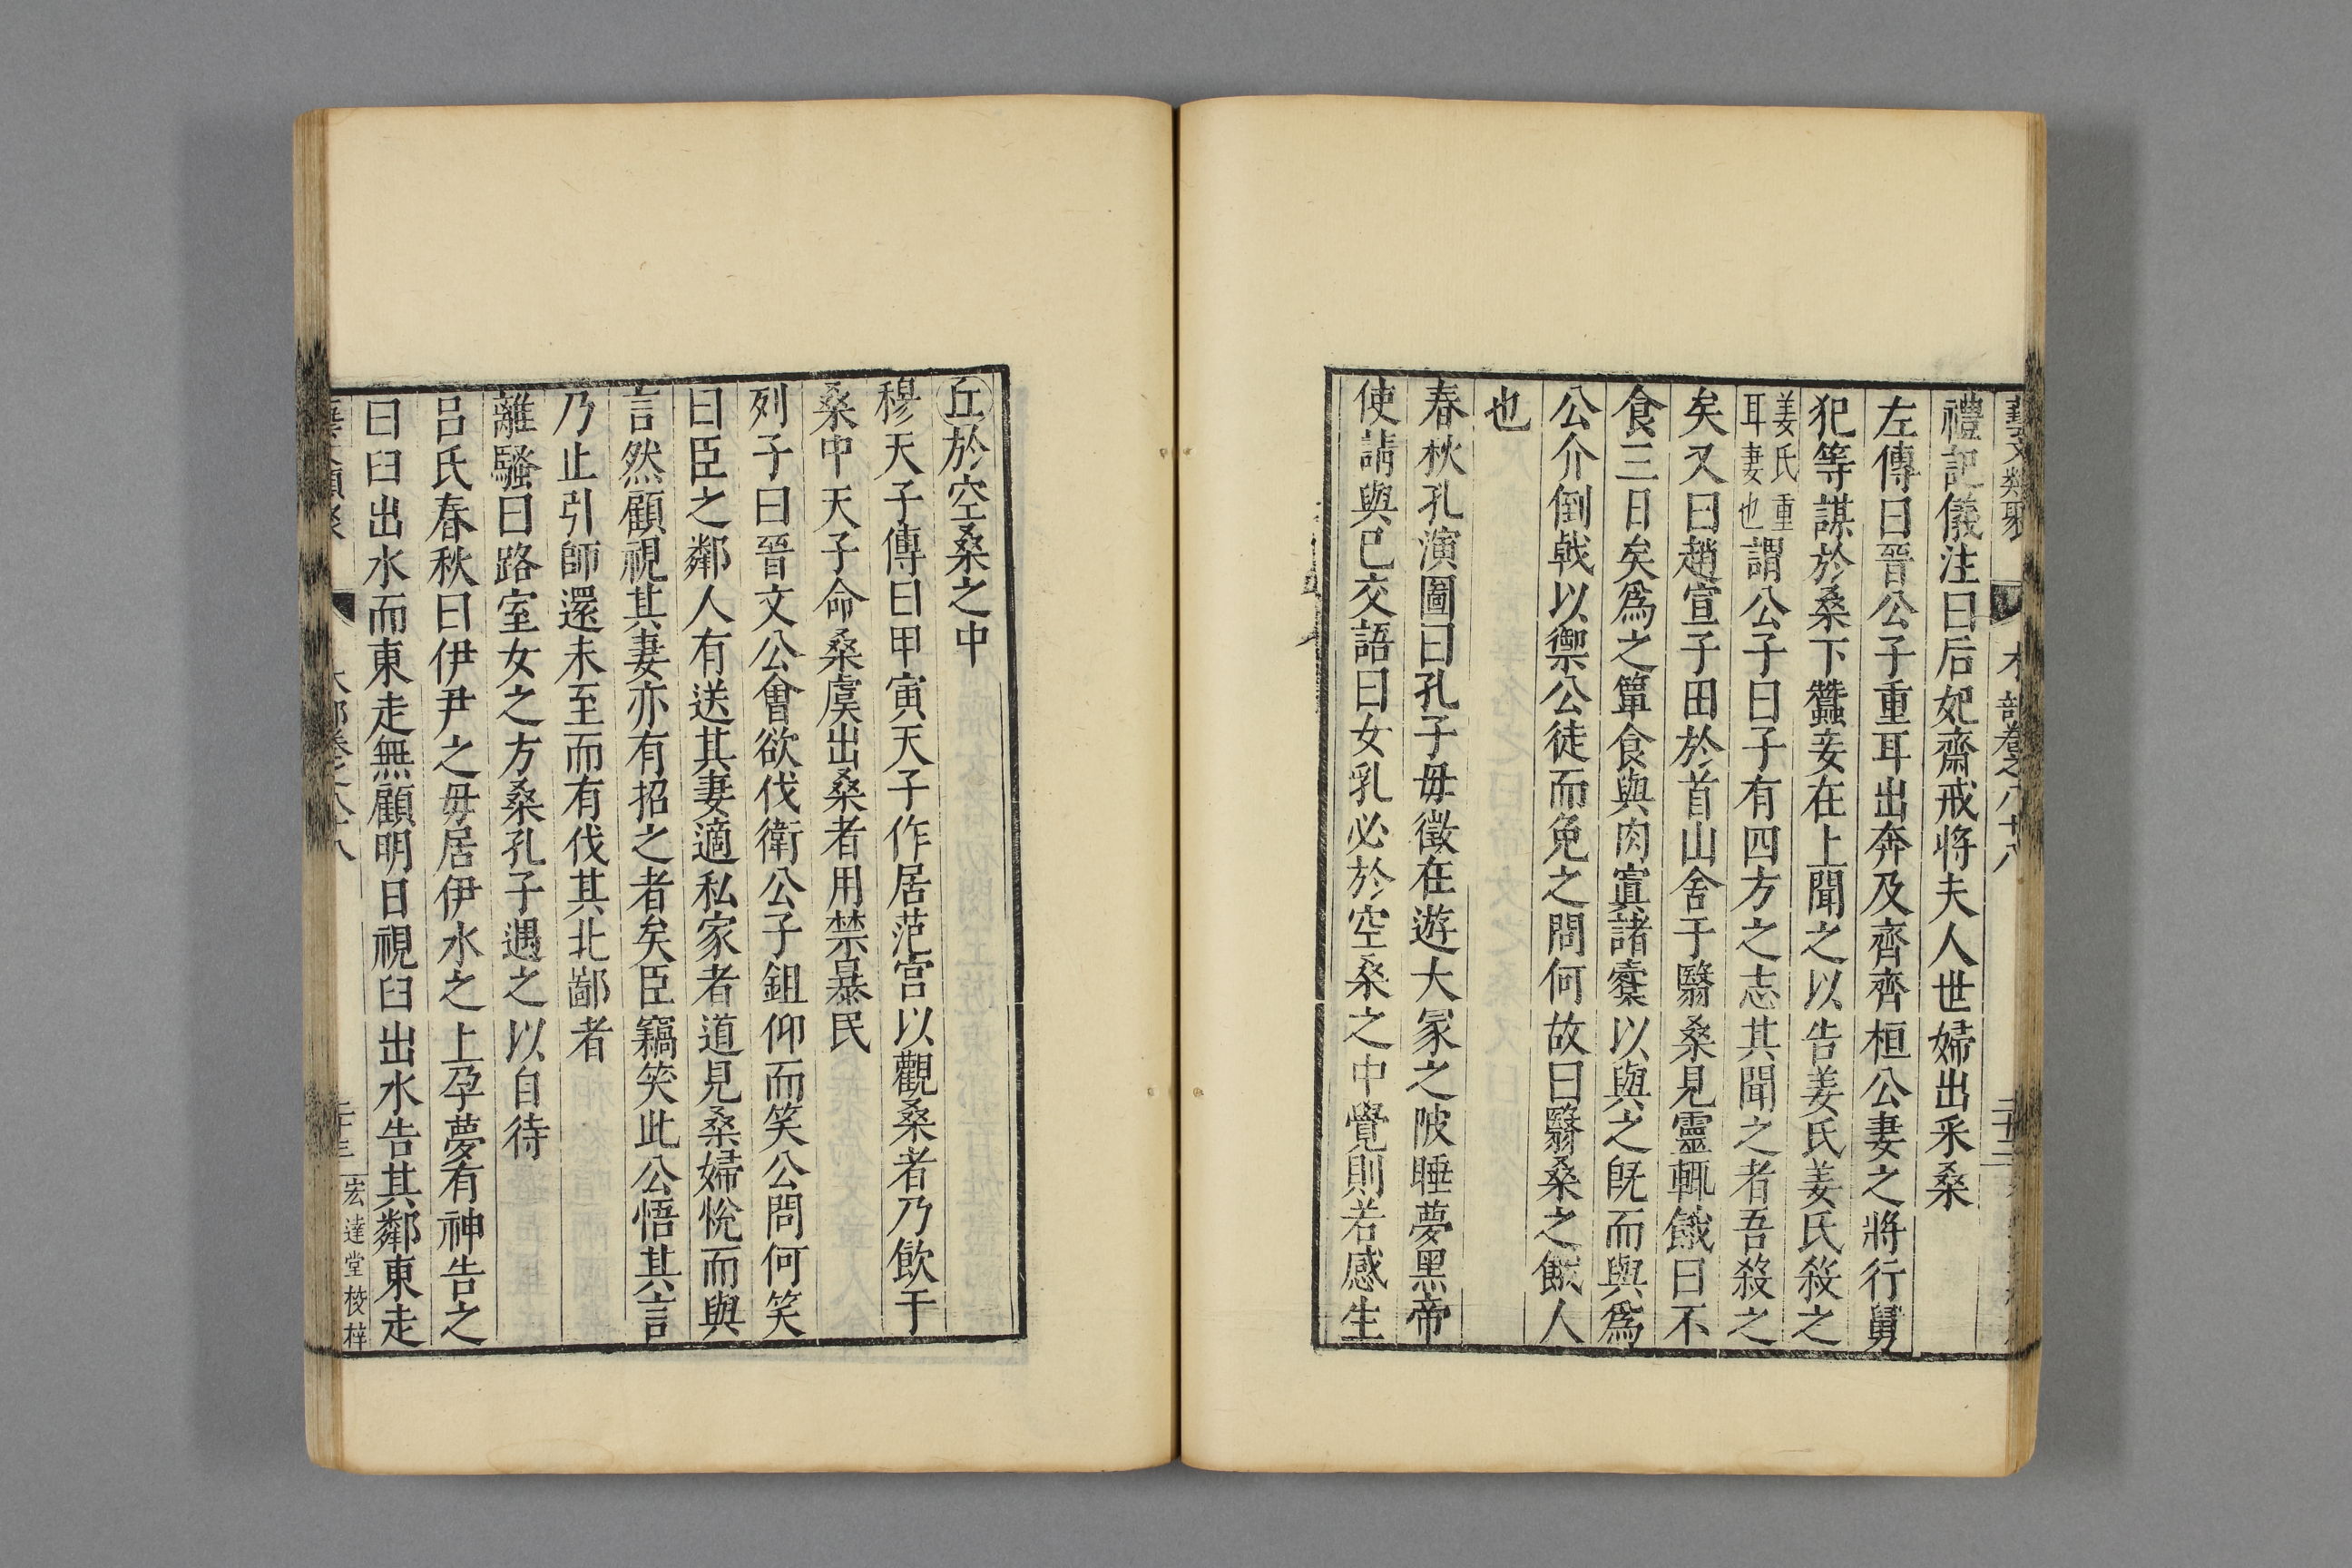 藝文類聚 木部卷之八十八 二十二
禮記儀注曰后妃齋戒將夫人世婦出采桑
左傳曰晉公子重耳出奔及齊齊桓公妻之將行舅
犯等謀於桑下蠶妾在上聞之以告姜氏姜氏殺之
姜氏重耳妻也謂公子曰子有四方之志其聞之者吾殺之
矣又曰趙宣子田於首山舍于翳桑見靈輒餓曰不
食三日矣為之簞食與肉寘諸橐以與之既而與為
公介倒戟以禦公徒而免之問何故曰翳桑之餓人
也
春秋孔演圖曰孔子毋徵在遊大冢之陂睡夢黑帝
使請與已交語曰女乳必於空桑之中覺則若感生
丘於空桑之中
穆天子傳曰甲寅天子作居范宮以觀桑者乃飲于
桑中天子命桑虞出桑者用禁暴民
列子曰晉文公會欲伐衛公子鉏仰而笑公問何笑
曰臣之鄰人有送其妻適私家者道見桑婦悅而與
言然顧視其妻亦有招之者矣臣竊笑此公悟其言
乃止引師還未至而有伐其北鄙者
離騷曰路室女之方桑孔子過之以自待
呂氏春秋曰伊尹之毋居伊水之上孕夢有神告之
曰臼出水而東走無顧明日視臼出水告其鄰東走
木部卷之八十八 宏達堂校梓